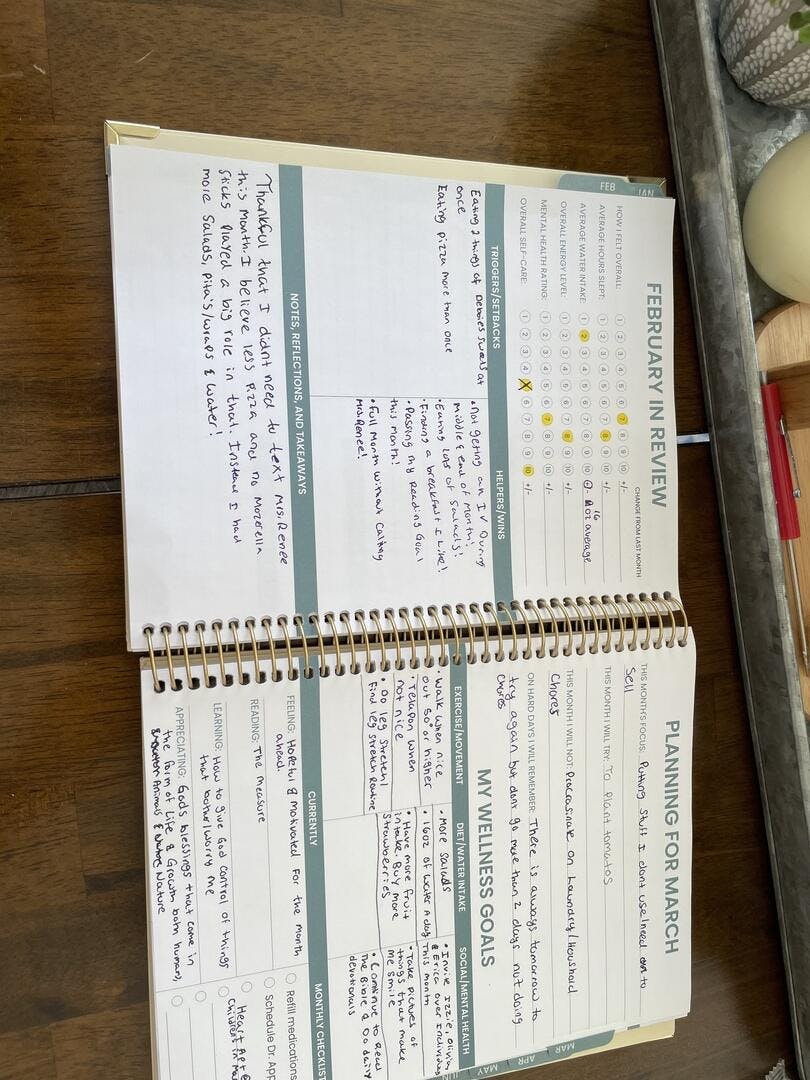 FEB
JAN
FEBRUARY IN REVIEW
CHANGE FROM LAST MONTH
HOW I FELT OVERALL: 1 2 3 4 5 6 7 8 9 10 +/-
AVERAGE HOURS SLEPT: 1 2 3 4 5 6 7 8 9 10 +/-
AVERAGE WATER INTAKE: 1 2 3 4 5 6 7 8 9 10 +/- 16 oz average
OVERALL ENERGY LEVEL: 1 2 3 4 5 6 7 8 9 10 +/-
MENTAL HEALTH RATING: 1 2 3 4 5 6 7 8 9 10 +/-
OVERALL SELF-CARE: 1 2 3 4 X 6 7 8 9 10 +/-
TRIGGERS/SETBACKS
Eating 2 things of Debbies sweets at
once
Eating pizza more than once
HELPERS/WINS
• Not getting an IV During
Middle & end of Month!
• Eating lots of Salads!
• Finding a breakfast I like!
• Passing my Reading Goal
this month!
• Full Month without Calling
Mrs. Renee!
NOTES, REFLECTIONS, AND TAKEAWAYS
Thankful that I didnt need to text Mrs. Renee
this Month I believe less Pizza and no Mozorella
Sticks Played a big role in that. Instead I had
more Salads, Pita's/wraps & Water!
PLANNING FOR MARCH
THIS MONTH'S FOCUS: Putting Stuff I dont use/need to
Sell
THIS MONTH I WILL TRY: To Plant tomatos
THIS MONTH I WILL NOT: Procrasinate on Laundry/Houshold
Chores
ON HARD DAYS I WILL REMEMBER: There is always tomorrow to
try again but dont go more than 2 days not doing
Chores
MY WELLNESS GOALS
EXERCISE/MOVEMENT
• Walk when nice
out 50 or higher
not nice
• Do leg Stretch!
Find leg stretch Routine
DIET/WATER INTAKE
• More Salads
• 160z of Water A day
• Have more fruit
intake. Buy more
Strawberries
SOCIAL/MENTAL HEALTH
• Invite Izzie, Olivia
& Erica over
This month
• Take Pictures of
things that make
me Smile
• Continue to Read
The Bible & Do daily
devotionals
CURRENTLY
FEELING: Hopeful & Motivated for the month
ahead.
READING: The Measure
LEARNING: How to give God control of things
that bother/worry me
APPRECIATING: Gods blessings that come in
the form of Life & Growth both human,
Animals & Nature
MONTHLY CHECKLIST
Refill medications
Schedule Dr. App
Heart Apt @
MAR
APR
MAY
JUN